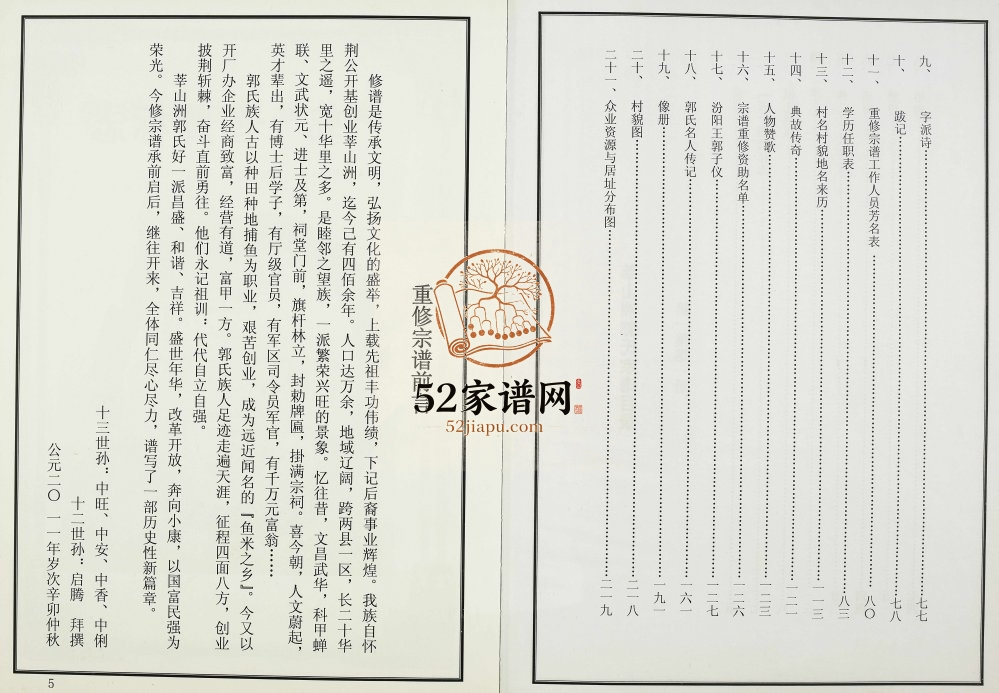 九、字派诗……七七
十、跋记……七八
十一、重修宗谱工作人员芳名表……八〇
十二、学历任职表……八三
十三、村名村貌地名来历……一一三
十四、典故传奇……一二一
十五、人物赞歌……一二三
十六、宗谱重修资助名单……一二六
十七、汾阳王郭子仪……一二七
十八、郭氏名人传记……一六一
十九、像册……一九一
二十、村貌图……二一八
二十一、众业资源与居址分布图……二一九
重修宗谱前言
修谱是传承文明，弘扬文化的盛举，上载先祖丰功伟绩，下记后裔事业辉煌。我族自怀
荆公开基创业莘山洲，迄今己有四佰余年。人口达万余，地域辽阔，跨两县一区，长二十华
里之遥，宽十华里之多。是睦邻之望族，一派繁荣兴旺的景象。忆往昔，文昌武华，科甲蝉
联、文武状元、进士及第，祠堂门前，旗杆林立，封勅牌匾，掛满宗祠。喜今朝，人文蔚起，
英才辈出，有博士后学子，有厅级官员，有军区司令员军官，有千万元富翁……
郭氏族人古以种田种地捕鱼为职业，艰苦创业，成为远近闻名的『鱼米之乡』。今又以
开厂办企业经商致富，经营有道，富甲一方。郭氏族人足迹走遍天涯，征程四面八方，创业
披荆斩棘，奋斗直前勇往。他们永记祖训：代代自立自强。
莘山洲郭氏好一派昌盛、和谐、吉祥。盛世年华，改革开放，奔向小康，以国富民强为
荣光。今修宗谱承前启后，继往开来，全体同仁尽心尽力，谱写了一部历史性新篇章。
十三世孙：中旺、中安、中香、中俐
十二世孙：启腾 拜撰
公元二〇一一年岁次辛卯仲秋
5
52家谱网
52jiapu.com